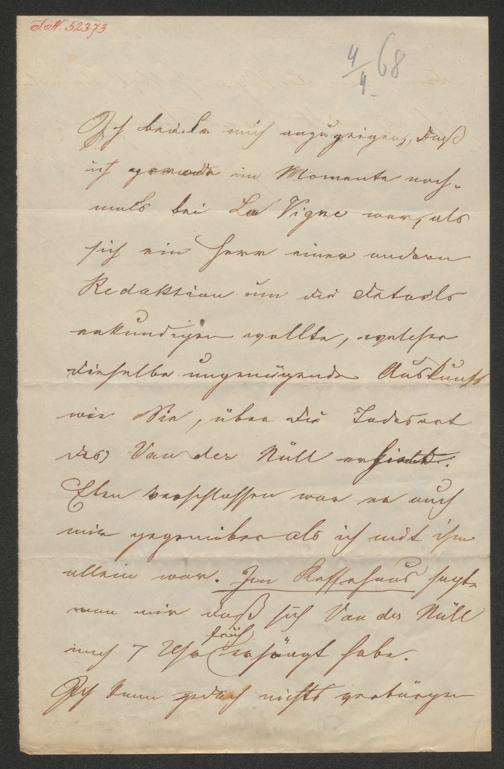 J.N. 52373
4/4 68
Ich beeile mich anzuzeigen, daß
ich gerade im Momente noch-
mals bei La Vigne war, als
sich ein Herr einer andern
Redaktion um die Details
erkundigen wollte, welcher
dieselbe ungenügende Auskunft
wie Sie, über die Todesart
des Van der Nüll erhielt.
Eben verschlossen war er auch
mir gegenüber als ich mit ihm
allein war. Im Kaffehaus sagte
man mir daß sich Van der Nüll
nach 7 Uhr früh erhängt habe.
Ich kann jedoch nichts verbürgen